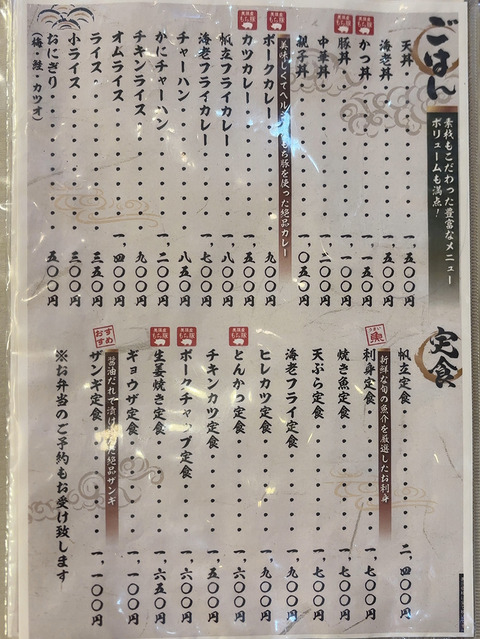 ごはん
素材もこだわった豊富なメニュー
ボリュームも満点!
天丼・・・・・・一、五〇〇円
海老丼・・・・・・一、五〇〇円
かつ丼・・・・・・一、一五〇円
豚丼・・・・・・一、一〇〇円
中華丼・・・・・・一、二〇〇円
親子丼・・・・・・一、〇五〇円
美味しくてヘル もち豚を使った絶品カレー
ポークカレー・・・・・・九〇〇円
カツカレー・・・・・・一、五〇〇円
帆立フライカレー・・・・・・一、八〇〇円
海老フライカレー・・・・・・一、七〇〇円
チャーハン・・・・・・八五〇円
かにチャーハン・・・・・・一、二〇〇円
チキンライス・・・・・・九〇〇円
オムライス・・・・・・一、四〇〇円
ライス・・・・・・三五〇円
小ライス・・・・・・三〇〇円
おにぎり・・・・・・五〇〇円
(梅・鮭・カツオ)
定食
帆立定食・・・・・・二、四〇〇円
新鮮な旬の魚介を厳選したお刺身
刺身定食・・・・・・一、七〇〇円
焼き魚定食・・・・・・一、七〇〇円
天ぷら定食・・・・・・一、七〇〇円
海老フライ定食・・・・・・一、九〇〇円
ヒレカツ定食・・・・・・一、九〇〇円
とんかつ定食・・・・・・一、六〇〇円
チキンカツ定食・・・・・・一、五〇〇円
ポークチャップ定食・・・・・・一、六〇〇円
生姜焼き定食・・・・・・一、六五〇円
ギョウザ定食・・・・・・一、一〇〇円
醤油だれで漬け 絶品ザンギ
おすすめ
ザンギ定食・・・・・・一、一〇〇円
※お弁当のご予約もお受け致します